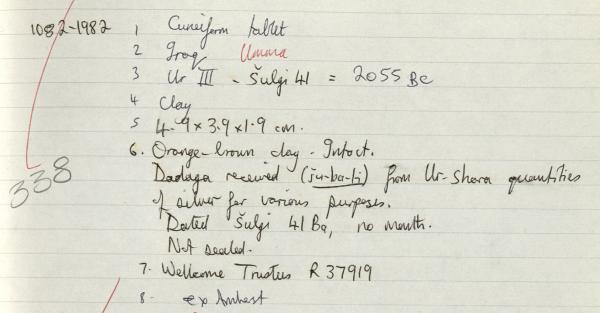 1082-1982 1 Cuneiform tablet
2 Iraq Umma
3 Ur III - Šulgi 41 = 2055 BC
4 Clay
5 4.9 x 3.9 x 1.9 cm.
6. Orange-brown clay - Intact.
Dadaga received (šu-ba-ti) from Ur-Shara quantities
338
of silver for various purposes.
Dated Šulgi 41 Ba, no month.
Not sealed.
7. Wellcome Trustees R 37919
8. ex Amhest